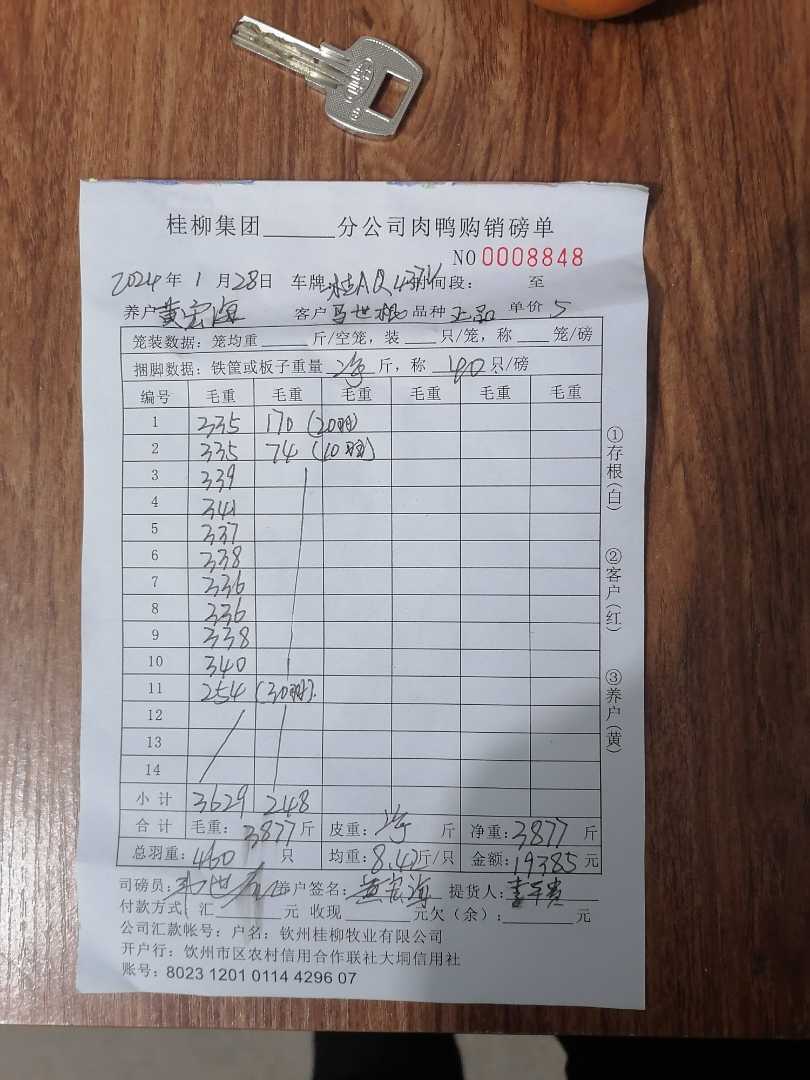 桂柳集团______分公司肉鸭购销磅单
NO 0008848
2024年1月28日 车牌: 桂A 时间段: 至
养户 黄宏海 客户 马世根 品种 正品 单价 5
笼装数据: 笼均重______斤/空笼, 装___只/笼, 称___笼/磅
捆脚数据: 铁筐或板子重量 净 斤, 称 40 只/磅
编号 毛重 毛重 毛重 毛重 毛重 毛重
1 335 170 (20羽)
2 335 74 (10羽)
3 339
4 341
5 337
6 338
7 336
8 336
9 338
10 340
11 254 (30羽).
12
13
14
小计 3629 248
合计 毛重: 3877斤 皮重: 净 斤 净重: 3877 斤
总羽重: 460 只 均重: 8.43斤/只 金额: 19385元
司磅员: 养户签名: 黄宏海 提货人:
付款方式: 汇______元 收现______元欠(余):______元
公司汇款帐号: 户名: 钦州桂柳牧业有限公司
开户行: 钦州市区农村信用合作联社大垌信用社
账号: 8023 1201 0114 4296 07
①存根(白)
②客户(红)
③养户(黄)